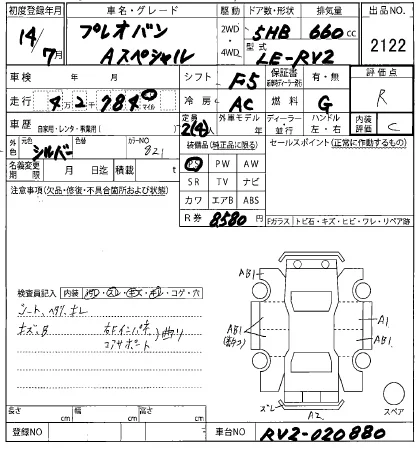 初度登録年月 車名・グレード 駆動 ドア数・形状 排気量 出品NO.
14/7月 プレオバン 2WD 5HB 660cc 2122
Aスペシャル 4WD 型式 LE-RV2
車検 年 月 シフト F5 保証書 有・無 評価点
走行 4万2千984 マイル 冷房 AC 燃料 G R
車歴 自家用・レンタ・乗業用( ) 定員 2(4) 外車モデル 年 ディーラー・並行 ハンドル 左・右 内装評価 C
外色 元色 シルバー 色替 カラーNO 821 装備品(純正品に限る) セールスポイント(正常に作動するもの)
名義変更期限 月 日迄 積載 t PS PW AW
SR TV ナビ
注意事項(欠品・修復・不具合箇所および状態) カワ エアB ABS
R券 8580
Fガラス トビ石・キズ・ヒビ・ワレ・リペア跡
検査員記入 内装 ・コゲ・穴
AB1 AB1
シート、
キズ、B
AB1 A1
AB1
長さ cm 幅 cm 高さ cm ズレ A2 スペア
登録NO 車台NO RV2-020880